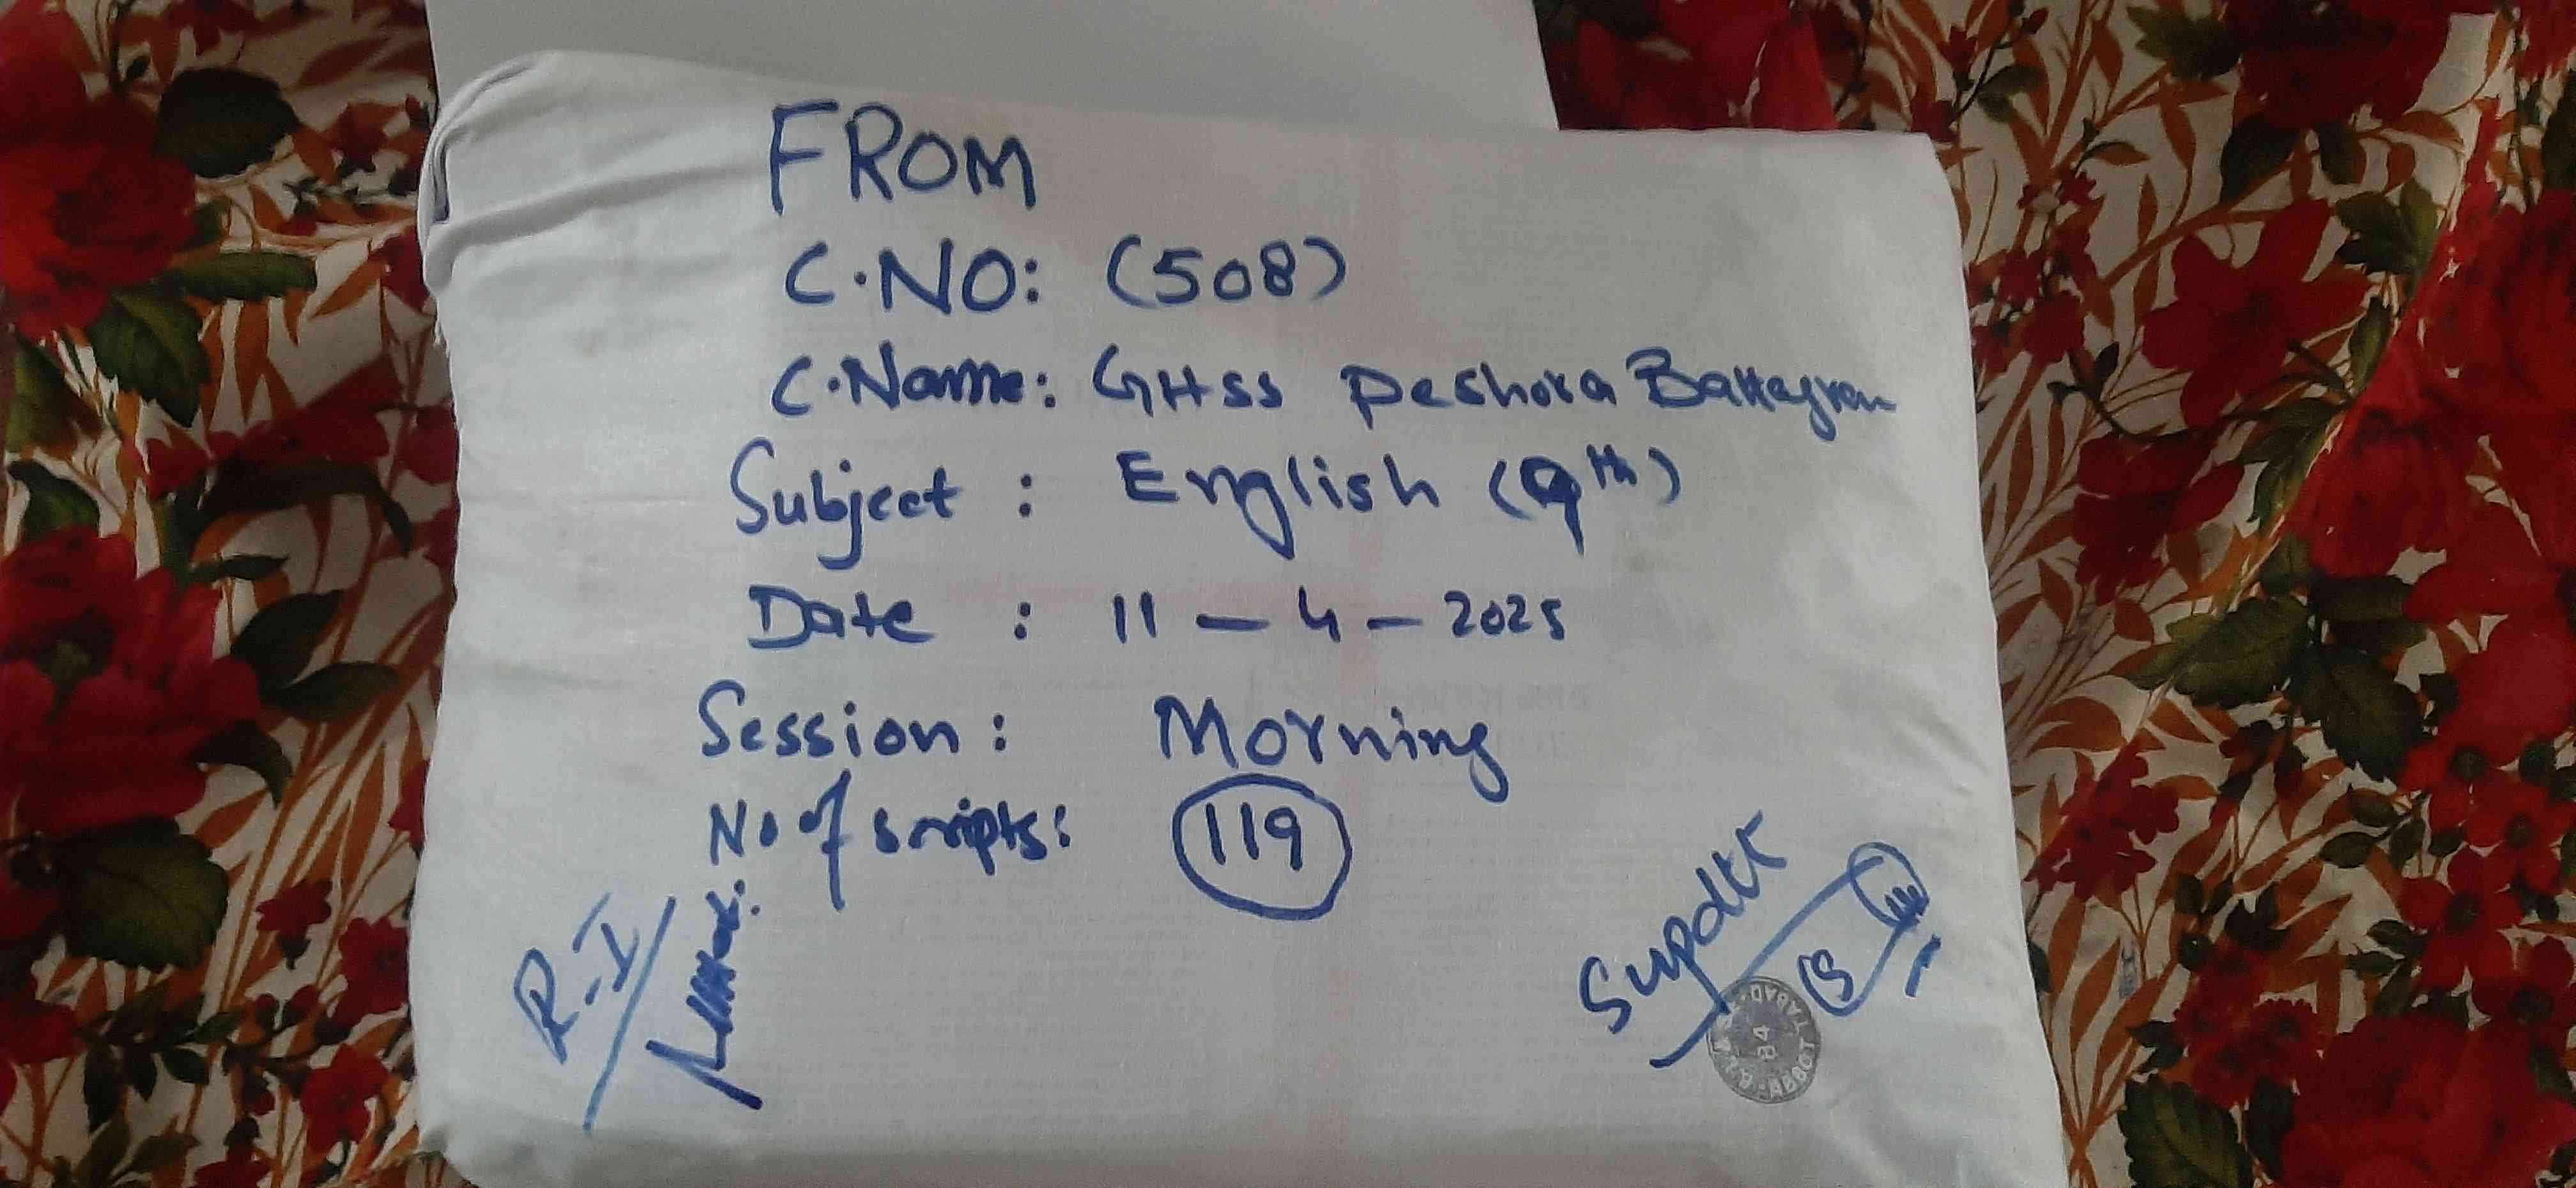 FROM
C.NO: (508)
C.Name: GHSS Peshora Battagram
Subject : English (9th)
Date : 11 - 4 - 2025
Session: Morning
No of scripts: 119
R-I
Supdtt
B.I.S.E. ABBOTTABAD
84